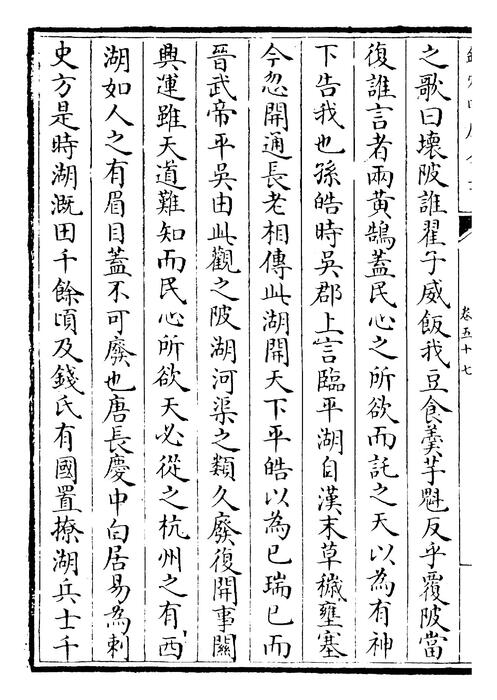 之歌曰壞陂誰翟子威飯我豆食羮芋魁反乎覆陂當
復誰言者兩黃鵠蓋民心之所欲而託之天以為有神
下告我也孫皓時吳郡上言臨平湖自漢末草穢壅塞
今忽開通長老相傳此湖開天下平皓以為已瑞已而
晉武帝平吳由此觀之陂湖河渠之類久廢復開事關
興運雖天道難知而民心所欲天必從之杭州之有西
湖如人之有眉目蓋不可廢也唐長慶中白居易為刺
史方是時湖漑田千餘頃及錢氏有國置撩湖兵士千
卷五十七